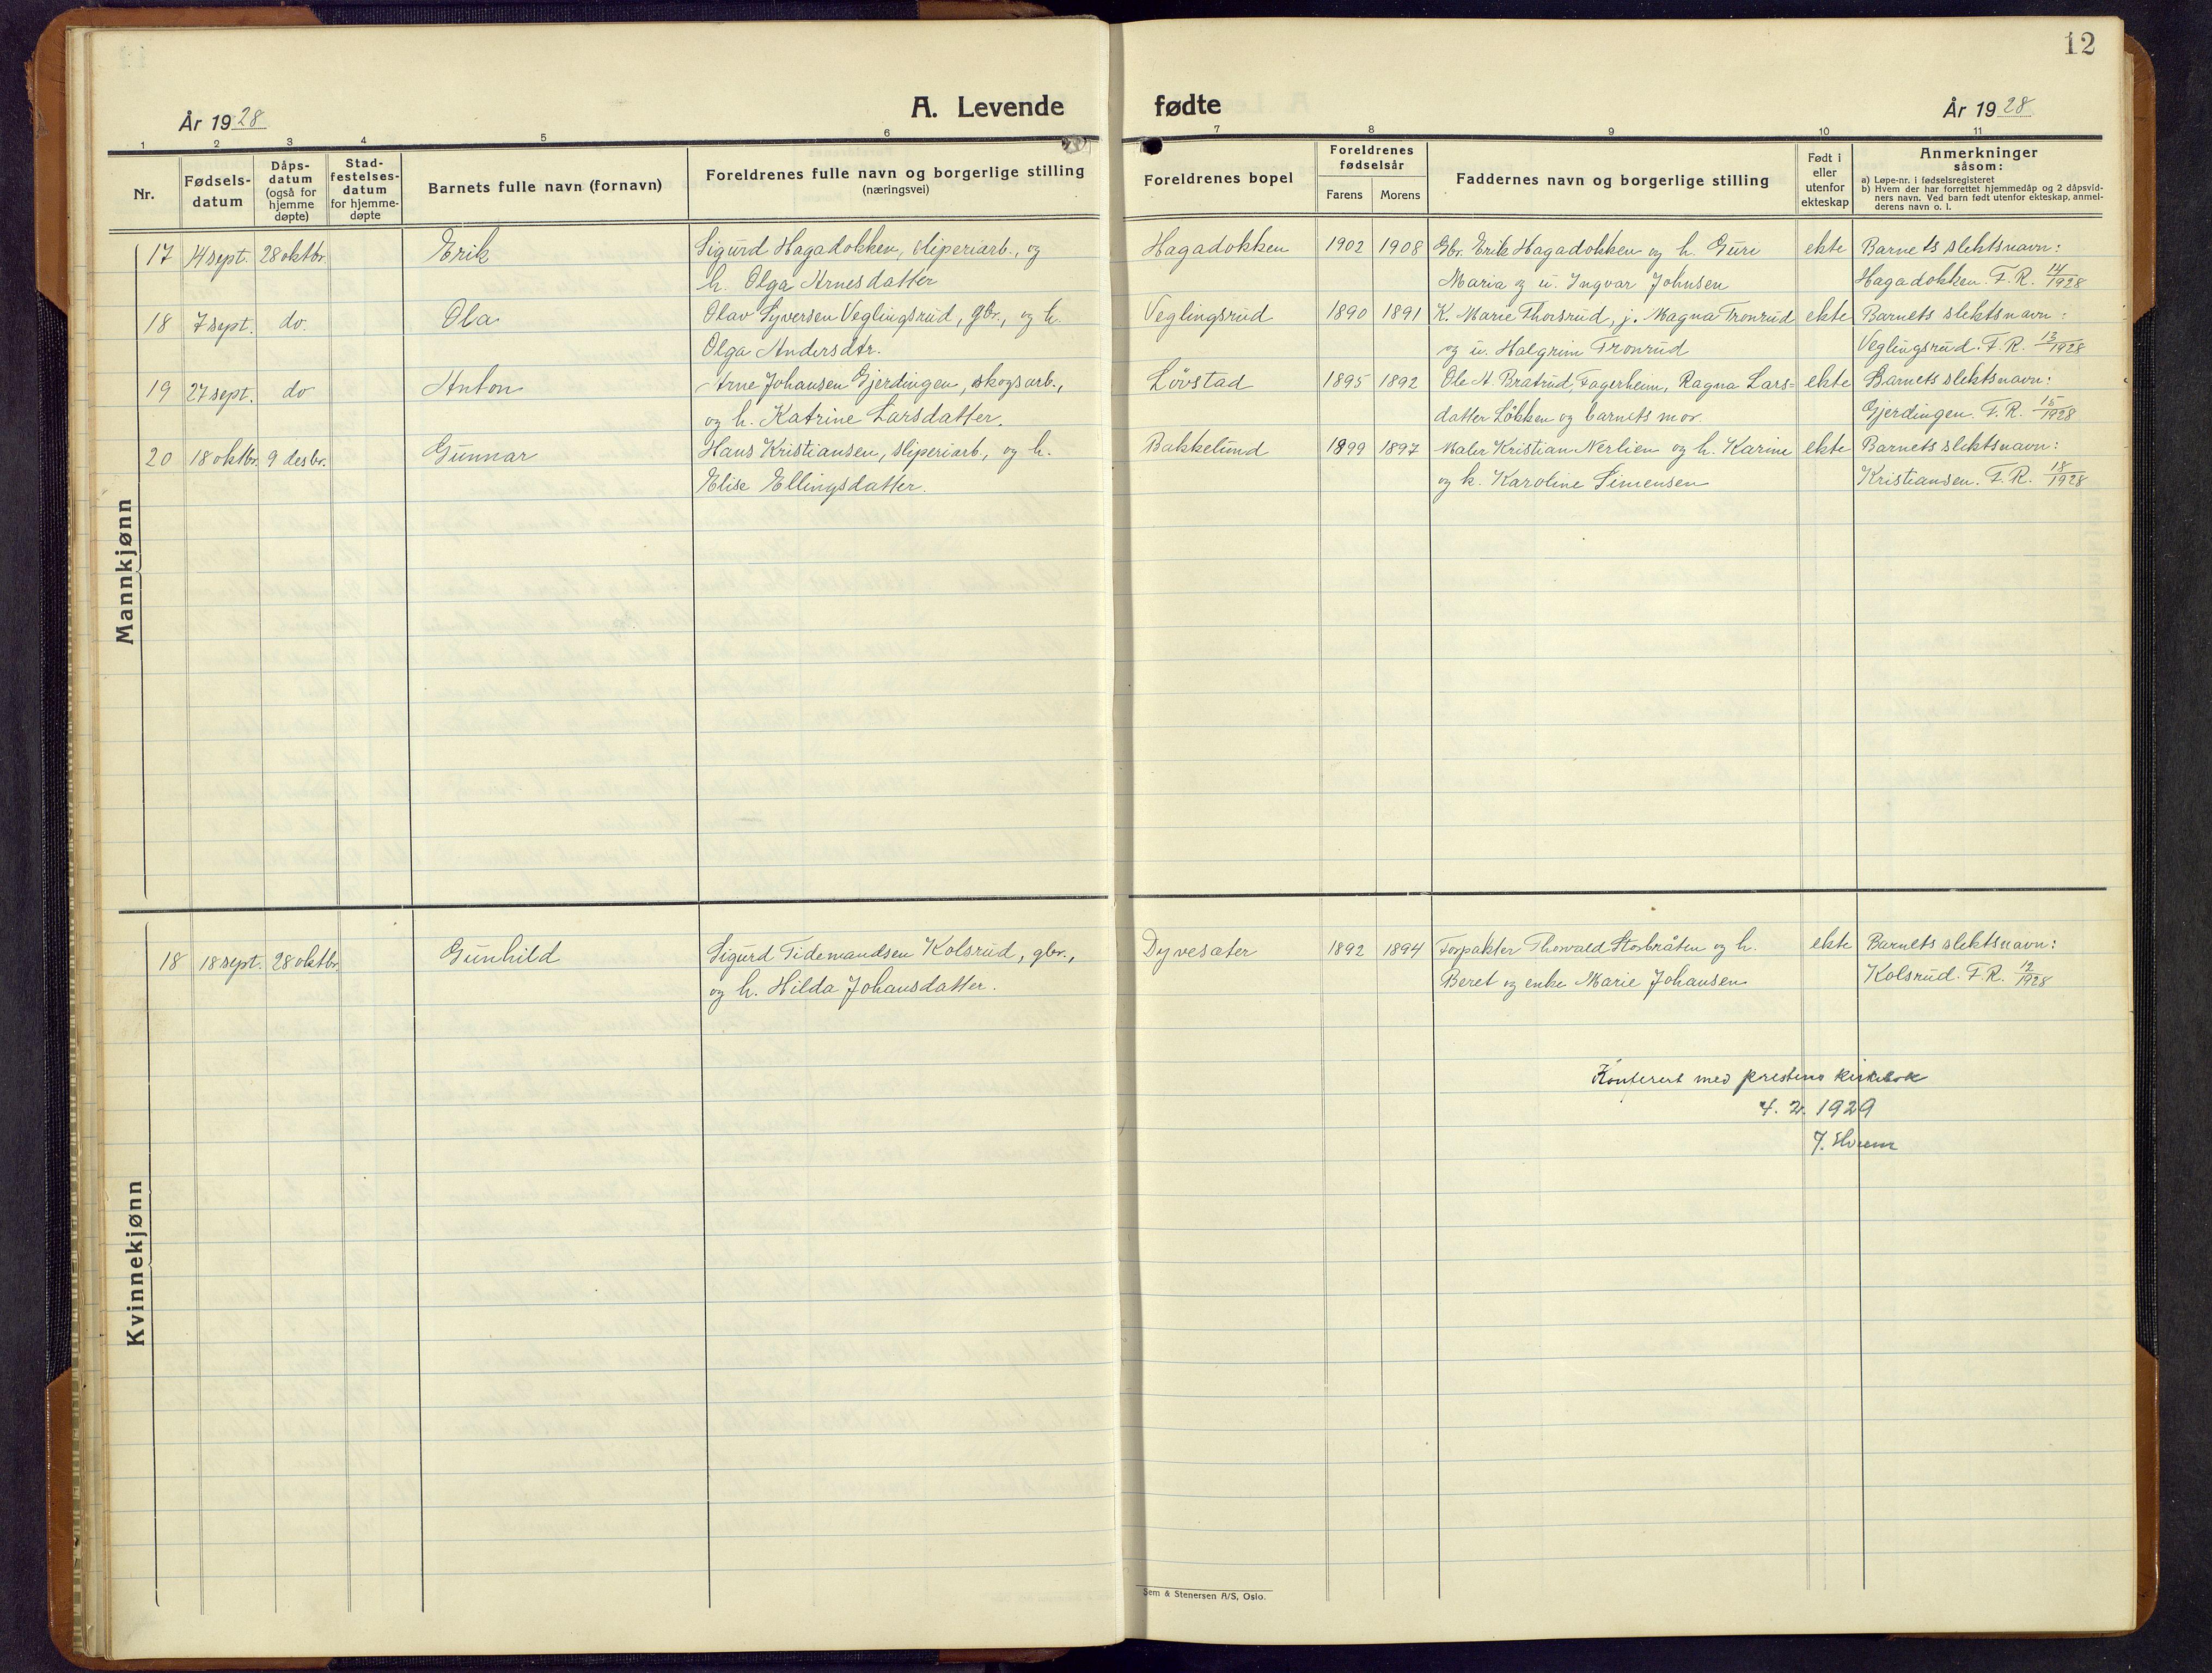 12
År 1928
A. Levende
fødte
År 1928
1 2 3 4 5 6 7 8 9 10 11
Nr.
Fødsels-
datum
Dåps-
datum
(også for
hjemme
døpte)
Stad-
festelses-
datum
for hjemme-
døpte
Barnets fulle navn (fornavn)
Foreldrenes fulle navn og borgerlige stilling
(næringsvei)
Foreldrenes bopel
Foreldrenes
fødselsår
Farens Morens
Faddernes navn og borgerlige stilling
Født i
eller
utenfor
ekteskap
Anmerkninger
såsom:
a) Løpe-nr. i fødselsregisteret
b) Hvem der har forrettet hjemmedåp og 2 dåpsvid-
ners navn. Ved barn født utenfor ekteskap, anmel-
derens navn o. l.
Mannkjønn
17 14 sept. 28 oktbr. Erik Sigurd Hagadokken, sliperiarb., og Hagadokken 1902 1908 Gbr. Erik Hagadokken og h. Guri ekte Barnets slektsnavn:
h. Olga Arnesdatter Maria og u. Ingvar Johnsen Hagadokken. F. R. 14/1928
18 7 sept. do. Ola Olav Syversen Veglingsrud, gbr., og h. Veglingsrud 1890 1891 K. Marie Thorsrud, j. Magna Tronrud ekte Barnets slektsnavn:
Olga Andersdtr. og u. Halgrim Tronrud Veglingsrud. F. R. 13/1928
19 27 sept. do Anton Arne Johansen Gjerdingen, skogsarb., Lövstad 1895 1892 Ole A. Bratrud, Fagerheim, Ragna Lars= ekte Barnets slektsnavn:
og h. Katrine Larsdatter. datter Løkken og barnets mor. Gjerdingen. F. R. 15/1928
20 18 oktbr. 9 desbr. Gunnar Hans Kristiansen, sliperiarb., og h. Bakkelund 1899 1897 Maler Kristian Nerlien og h. Karine ekte Barnets slektsnavn:
Elise Ellingsdatter. og k. Karoline Simensen Kristiansen. F. R. 18/1928
Kvinnekjønn
18 18 sept. 28 oktbr. Gunhild Sigurd Tidemandsen Kolsrud, gbr., Dyvesæter 1892 1894 Forpakter Thorvald Storbråten og h. ekte Barnets slektsnavn:
og h. Hilda Johansdatter. Beret og enke Marie Johansen Kolsrud. F. R. 12/1928
Konferert med prestens kirkebok
4. 2. 1929
Sem & Stenersen A/S, Oslo.